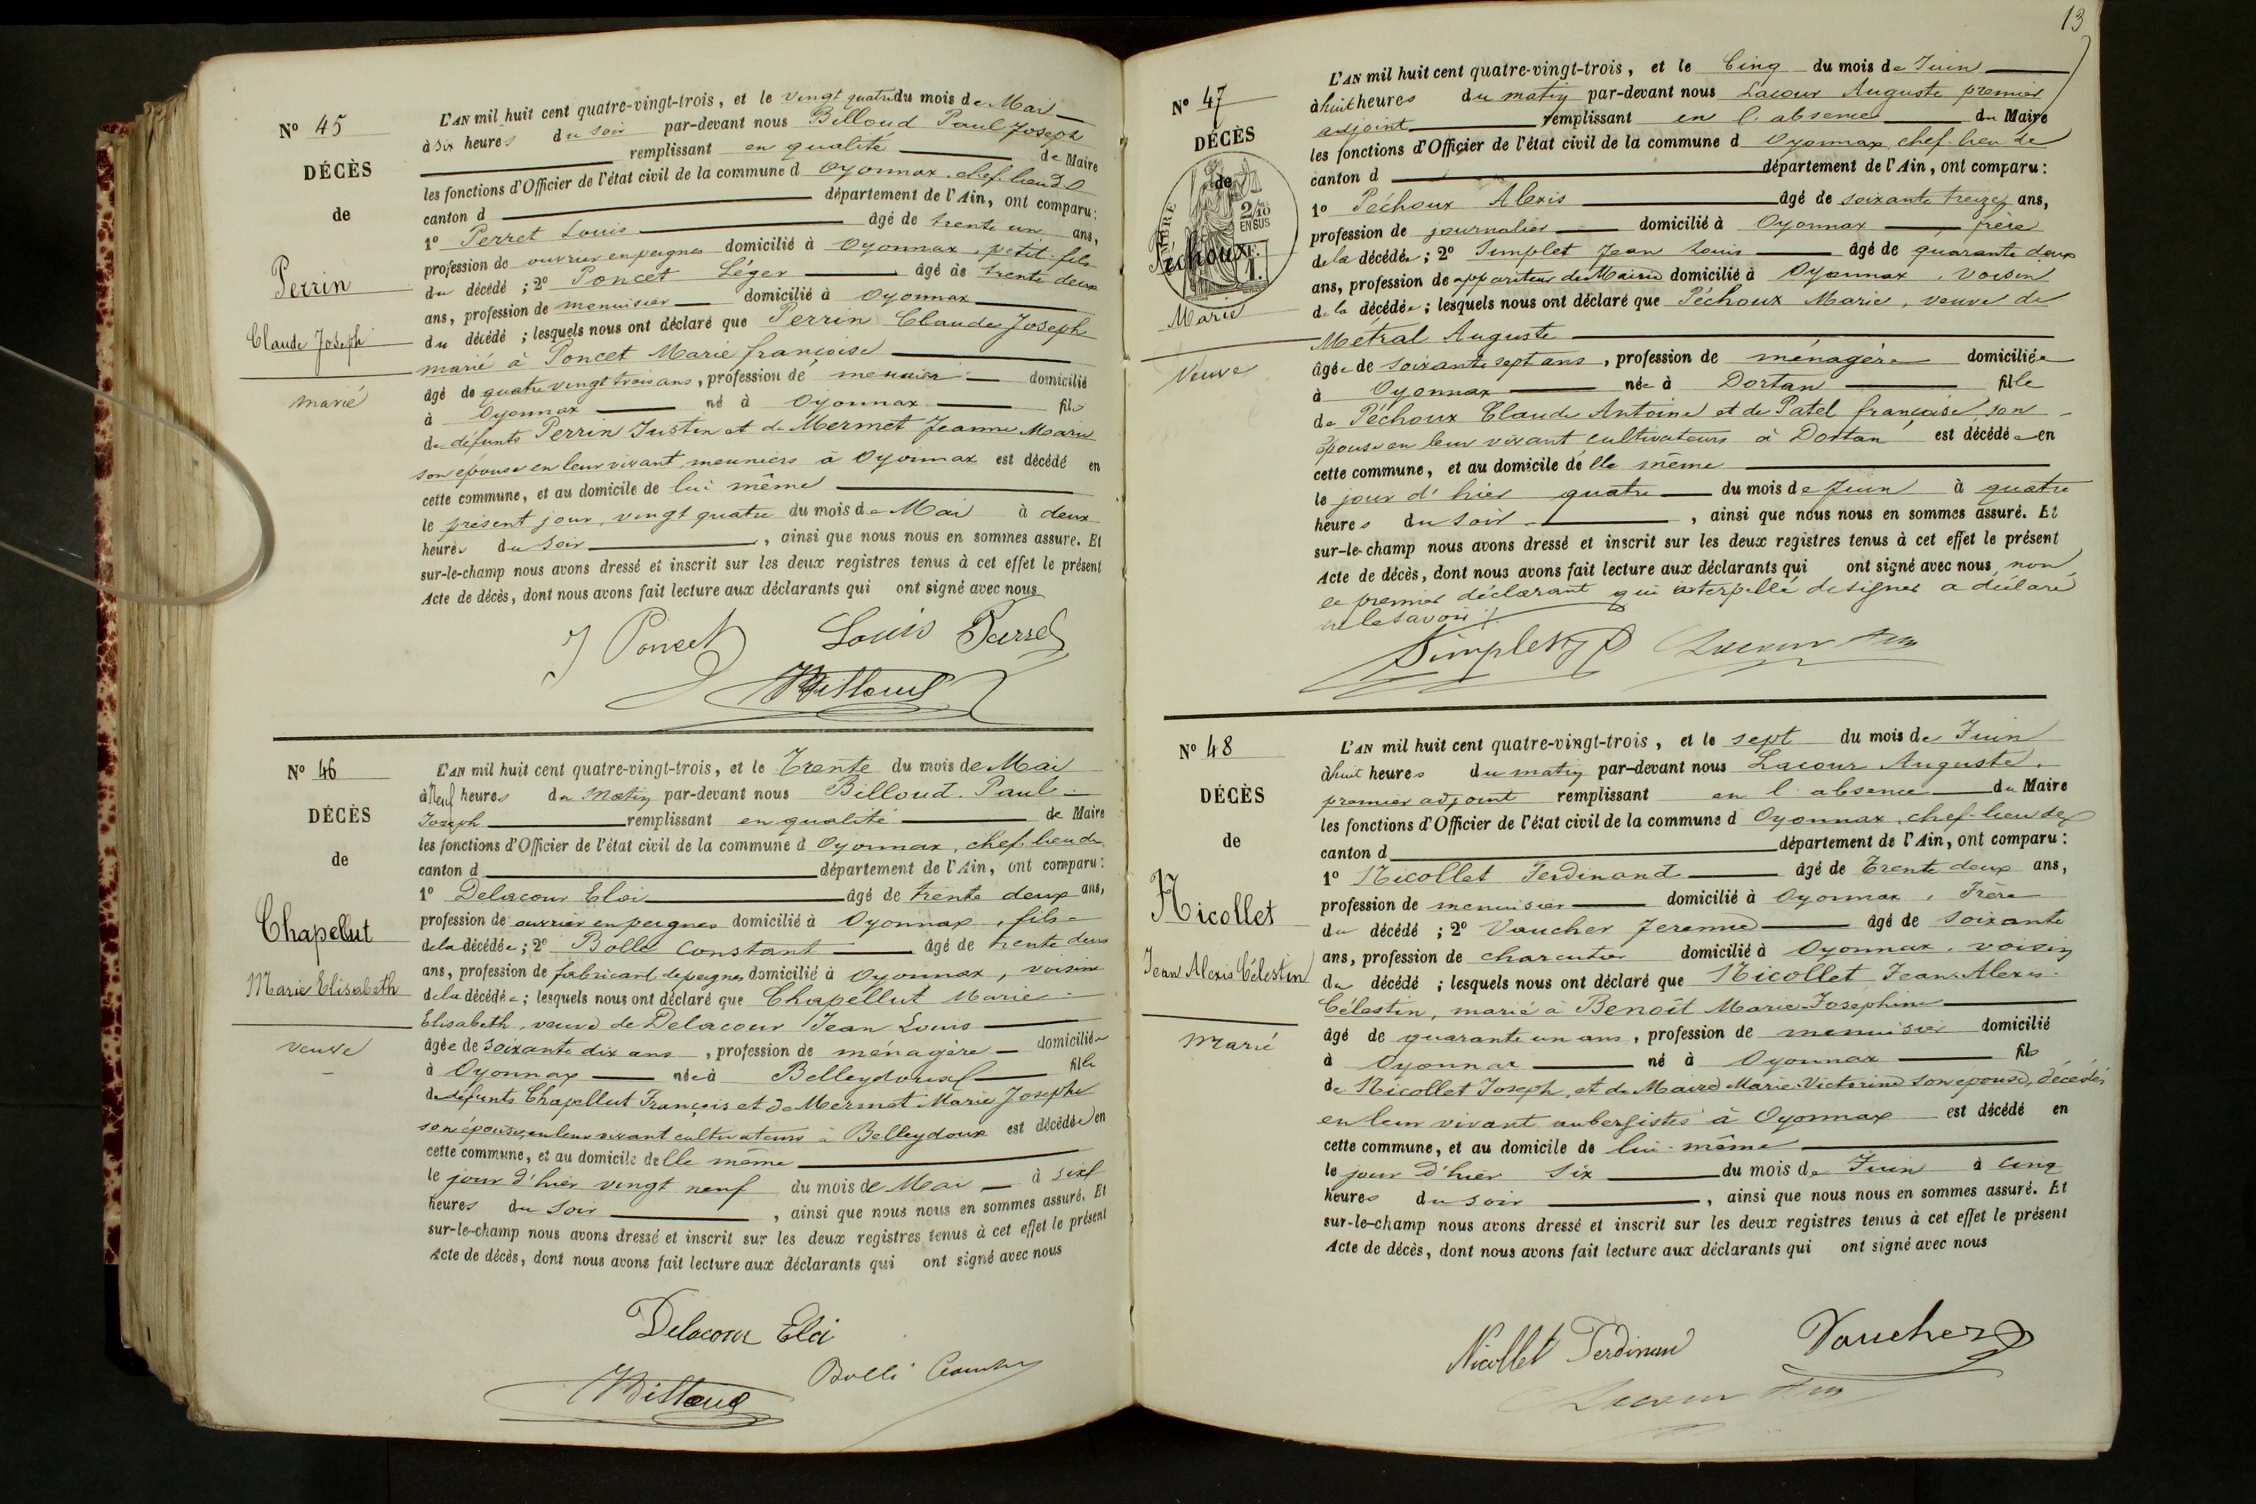 N° 45
DÉCÈS
de
Perrin
Claude Joseph
marié
L'AN mil huit cent quatre-vingt-trois, et le vingt quatre du mois de Mai
à six heures du soir par-devant nous Billoud Paul Joseph
remplissant en qualité de Maire
les fonctions d'Officier de l'état civil de la commune d Oyonnax, chef-lieu d
canton d département de l'Ain, ont comparu:
1° Perret Louis âgé de trente un ans,
profession de ouvrier en peignes domicilié à Oyonnax, petit-fils
du décédé ; 2° Poncet Léger âgé de trente deux
ans, profession de menuisier domicilié à Oyonnax
du décédé ; lesquels nous ont déclaré que Perrin Claude Joseph
marié à Poncet Marie françoise
âgé de quatre vingt trois ans, profession de meunier domicilié
à Oyonnax né à Oyonnax fils
de défunts Perrin Justin et de Mermet Jeanne Marie
son épouse en leur vivant meuniers à Oyonnax est décédé en
cette commune, et au domicile de lui même
le présent jour, vingt quatre du mois de Mai à deux
heures du soir, ainsi que nous nous en sommes assuré. Et
sur-le-champ nous avons dressé et inscrit sur les deux registres tenus à cet effet le présent
Acte de décès, dont nous avons fait lecture aux déclarants qui ont signé avec nous
J Poncet Louis Perret
Billoud
N° 46
DÉCÈS
de
Chapellut
Marie Elisabeth
veuve
L'AN mil huit cent quatre-vingt-trois, et le Trente du mois de Mai
à Neuf heures du Matin par-devant nous Billoud Paul
Joseph remplissant en qualité de Maire
les fonctions d'Officier de l'état civil de la commune d Oyonnax, chef-lieu de
canton d département de l'Ain, ont comparu:
1° Delacour Eloi âgé de trente deux ans,
profession de ouvrier en peignes domicilié à Oyonnax, fils
de la décédée ; 2° Bollé Constant âgé de trente deux
ans, profession de fabricant de peignes domicilié à Oyonnax, voisin
de la décédée ; lesquels nous ont déclaré que Chapellut Marie
Elisabeth, veuve de Delacour Jean Louis
âgée de soixante dix ans, profession de ménagère domiciliée
à Oyonnax née à Belleydoux fille
de défunts Chapellut François et de Mermet Marie Josephe
son épouse, en leur vivant cultivateurs à Belleydoux est décédée en
cette commune, et au domicile d elle même
le jour d'hier vingt neuf du mois de Mai à six
heures du soir, ainsi que nous nous en sommes assuré. Et
sur-le-champ nous avons dressé et inscrit sur les deux registres tenus à cet effet le présent
Acte de décès, dont nous avons fait lecture aux déclarants qui ont signé avec nous
Delacour Eloi
Billoud
13
N° 47
DÉCÈS
de
2/10
EN SUS
Péchoux
Marie
Veuve
L'AN mil huit cent quatre-vingt-trois, et le Cinq du mois de Juin
à huit heures du matin par-devant nous Lacour Auguste premier
adjoint remplissant en l'absence du Maire
les fonctions d'Officier de l'état civil de la commune d Oyonnax, chef-lieu de
canton d département de l'Ain, ont comparu:
1° Péchoux Alexis âgé de soixante treize ans,
profession de journalier domicilié à Oyonnax, frère
de la décédée ; 2° Simplet Jean Louis âgé de quarante deux
ans, profession de appariteur de Mairie domicilié à Oyonnax, voisin
de la décédée ; lesquels nous ont déclaré que Péchoux Marie, veuve de
Métral Auguste
âgée de soixante sept ans, profession de ménagère domiciliée
à Oyonnax née à Dortan fille
de Péchoux Claude Antoine et de Patel françoise son
épouse en leur vivant cultivateurs à Dortan est décédée en
cette commune, et au domicile d elle même
le jour d'hier quatre du mois de Juin à quatre
heures du soir, ainsi que nous nous en sommes assuré. Et
sur-le-champ nous avons dressé et inscrit sur les deux registres tenus à cet effet le présent
Acte de décès, dont nous avons fait lecture aux déclarants qui ont signé avec nous, non
le premier déclarant qui interpellé de signer a déclaré
ne le savoir
Simplet Lacour
N° 48
DÉCÈS
de
Nicollet
Jean Alexis Célestin
Marié
L'AN mil huit cent quatre-vingt-trois, et le sept du mois de Juin
à huit heures du matin par-devant nous Lacour Auguste,
premier adjoint remplissant en l'absence du Maire
les fonctions d'Officier de l'état civil de la commune d Oyonnax, chef-lieu de
canton d département de l'Ain, ont comparu:
1° Nicollet Ferdinand âgé de Trente deux ans,
profession de menuisier domicilié à Oyonnax, Frère
du décédé ; 2° Vaucher Jeremie âgé de soixante
ans, profession de charcutier domicilié à Oyonnax, voisin
du décédé ; lesquels nous ont déclaré que Nicollet Jean-Alexis
Célestin, marié à Benoît Marie-Josephine
âgé de quarante un ans, profession de menuisier domicilié
à Oyonnax né à Oyonnax fils
de Nicollet Joseph, et de Maire Marie-Victorine son épouse, décédés
en leur vivant aubergistes à Oyonnax est décédé en
cette commune, et au domicile de lui-même
le jour d'hier six du mois de Juin à cinq
heures du soir, ainsi que nous nous en sommes assuré. Et
sur-le-champ nous avons dressé et inscrit sur les deux registres tenus à cet effet le présent
Acte de décès, dont nous avons fait lecture aux déclarants qui ont signé avec nous
Nicollet Ferdinand Vaucher
Lacour